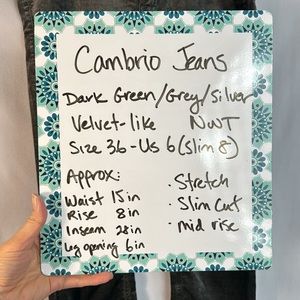 Cambrio Jeans
Dark Green/Grey/Silver
Velvet-like NWT
Size 36-US 6 (slim 8)
Approx:
Waist 15in
Rise 8in
Inseam 28in
Leg opening 6in
· Stretch
· Slim Cut
· mid rise